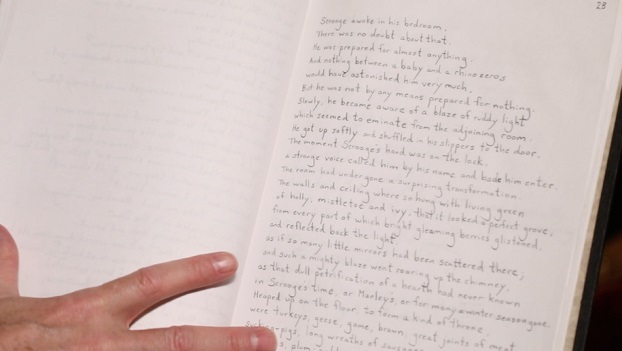 23
Scrooge awoke in his bedroom.
There was no doubt about that.
He was prepared for almost anything.
And nothing between a baby and a rhinozeros
would have astonished him very much.
But he was not by any means prepared for nothing.
Slowly, he became aware of a blaze of ruddy light
which seemed to eminate from the adjoining room.
He got up softly and shuffled in his slippers to the door.
The moment Scrooge's hand was on the lock,
a strange voice called him by his name and bade him enter.
The room had undergone a surprising transformation.
The walls and ceiling where so hung with living green
of holly, mistletoe and ivy, that it looked a perfect grove,
from every part of which bright gleaming berries glistened,
and reflected back the light,
as if so many little mirrors had been scattered there;
and such a mighty blaze went roaring up the chimney,
as that dull petrification of a hearth had never known
in Scrooges time, or Marleys, or for many a winter season gone.
Heaped up on the floor to form a kind of throne
were turkeys, geese, game, brawn, great joints of meat
sucking-pigs, long wreaths of sausages